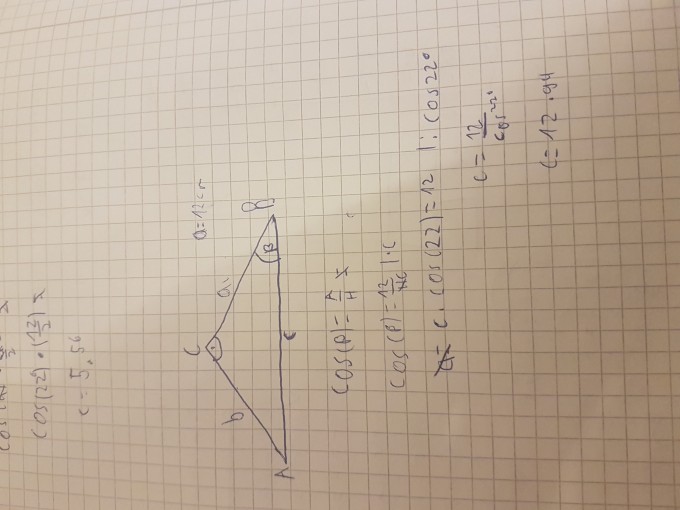 cos(22) · (12/2) x
c = 5.56
a = 12cm
C
a
b
B
β
A
c
cos(β) = A/H x
cos(β) = 12/c | · c
c · cos(22) = 12 | : cos 22°
c = 12/cos 22°
c = 12.94